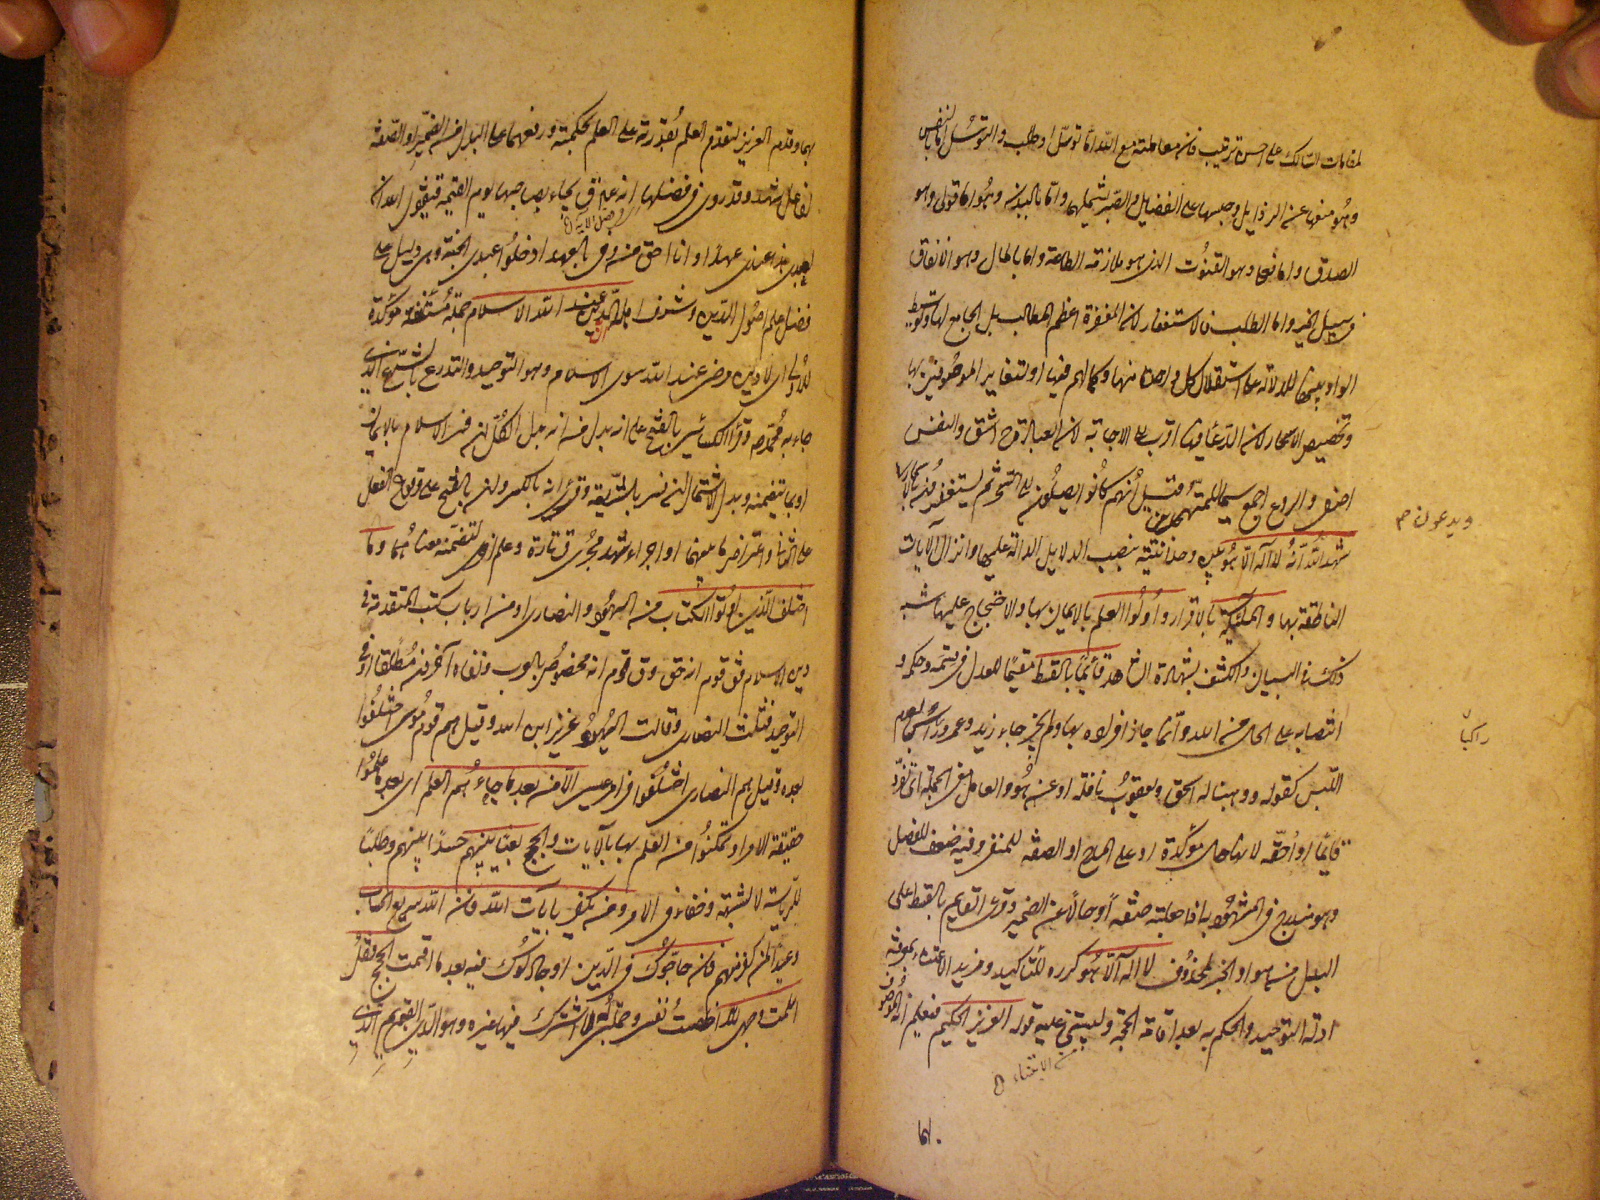 لمقامات السالك على احسن ترتيب فان معاملته مع الله اما توسل او طلب والتوسل اما بالنفس
وهو منعها عن الرذايل وحبسها على الفضايل والصبر يشملهما واما بالبدن وهو اما قولى وهو
الصدق واما فعلى وهو القنوت الذى هو ملازمة الطاعة واما بالمال وهو الانفاق
فى سبيل الخير واما الطلب فالاستغفار لان المغفرة اعظم المطالب بل الجامع لها وتوسيط
الواو بينها للدلالة على استقلال كل واحدة منها وكمالهم فيها او لتغاير الموصوفين بها
وتخصيص الاسحار لان الدعاء فيها اقرب الى الاجابة لان العبادة ح اشق والنفس
اصفى والروع اجمع سيما للمتهجدين قيل انهم كانوا يصلون الى السحر ثم يستغفرون بالاسحار
ويدعون صح
شهد الله انه لا اله الا هو بين وحدانيته بنصب الدلايل الدالة عليها وانزال الايات
الناطقة بها والملئكة بالاقرار واولوا العلم بالايمان بها والاحتجاج عليها شبه
ذلك فى البيان والكشف بشهادة الشاهد قائما بالقسط مقيما للعدل فى قسمه وحكمه و
انتصابه على الحال من الله وانما جاز افراده بها ولم يجز جاء زيد وعمرو راكبا لعدم
راكبا
اللبس كقوله ووهبنا له اسحق ويعقوب نافلة او عن هو والعامل فى الجملة اى تفرد
قائما او احقه لانها حال مؤكدة او على المدح او الصفة للمنفى وفيه ضعف للفصل
وهو مندرج فى المشهود به اذا جعلته صفة او حالا عن الضمير وقرئ القايم بالقسط على
البدل من هو او الخبر لمحذوف لا اله الا هو كرره للتاكيد ومزيد الاعتناء بمعرفة
ادلة التوحيد والحكم به بعد اقامة الحجة وليبتنى عليه قوله العزيز الحكيم فيعلم انه الموصوف
بهما وقدم العزيز لتقدم العلم بقدرته على العلم بحكمته ورفعهما على البدل من الضمير او الصفة
لفاعل شهد وقد روى فى فضلها انه عم ق يجاء بصاحبها يوم القيمة فيقول الله ان
لعبدى هذا عندى عهدا وانا احق من وفى بالعهد ادخلوا عبدى الجنة وهى دليل على
فضل علم اصول الدين وشرف اهله ان الدين عند الله الاسلام جملة مستأنفة مؤكدة
للاولى اى لا دين مرضى عند الله سوى الاسلام وهو التوحيد والتدرع بالشرع الذى
جاء به محمد ص وقرأ الكسائى بالفتح على انه بدل من انه بدل الكل ان فسر الاسلام بالايمان
او بما يتضمنه وبدل الاشتمال ان فسر بالشريعة وقرئ انه بالكسر وان بالفتح على وقوع الفعل
على الثانى واعتراض ما بينهما او اجراء شهد مجرى ق تارة وعلم اخرى لتضمنه معناهما وما
اختلف الذين اوتوا الكتاب من اليهود والنصارى او من ارباب كتب المتقدمة فى
دين الاسلام فق قوم انه حق وق قوم انه مخصوص بالعرب ونفاه آخرون مطلقا او فى
التوحيد فثلثت النصارى وقالت اليهود عزير ابن الله وقيل هم قوم موسى اختلفوا
بعده وقيل هم النصارى اختلفوا فى امر عيسى الا من بعد ما جاءهم العلم اى بعد ما علموا
حقيقة الامر او تمكنوا من العلم بها بالآيات والحجج بغيا بينهم حسدا بينهم وطلبا
للرياسة لا لشبهة وخفاء فى الامر ومن يكفر بايات الله فان الله سريع الحساب
وعيد لمن كفر منهم فان حاجوك فى الدين او جادلوك فيه بعد ما اقمت الحجج فقل
اسلمت وجهى لله اخلصت نفسى وجملتى له لا اشرك فيها غيره وهو الدين القويم الذى